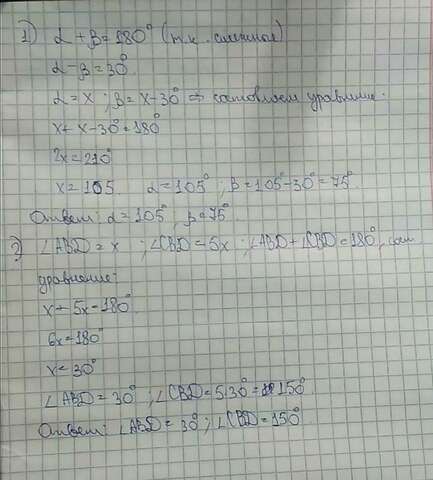 1) α + β = 180° (т.к. смежные)
α - β = 30°
α = x ; β = x - 30° ⇒ составляем уравнение:
x + x - 30° = 180°
2x = 210°
x = 105 α = 105° ; β = 105° - 30° = 75°
Ответ: α = 105° ; β = 75°
2) ∠ABD = x ; ∠CBD = 5x ; ∠ABD + ∠CBD = 180°, сост.
уравнение:
x + 5x = 180°
6x = 180°
x = 30°
∠ABD = 30° ; ∠CBD = 5·30° = 150°
Ответ: ∠ABD = 30° ; ∠CBD = 150°